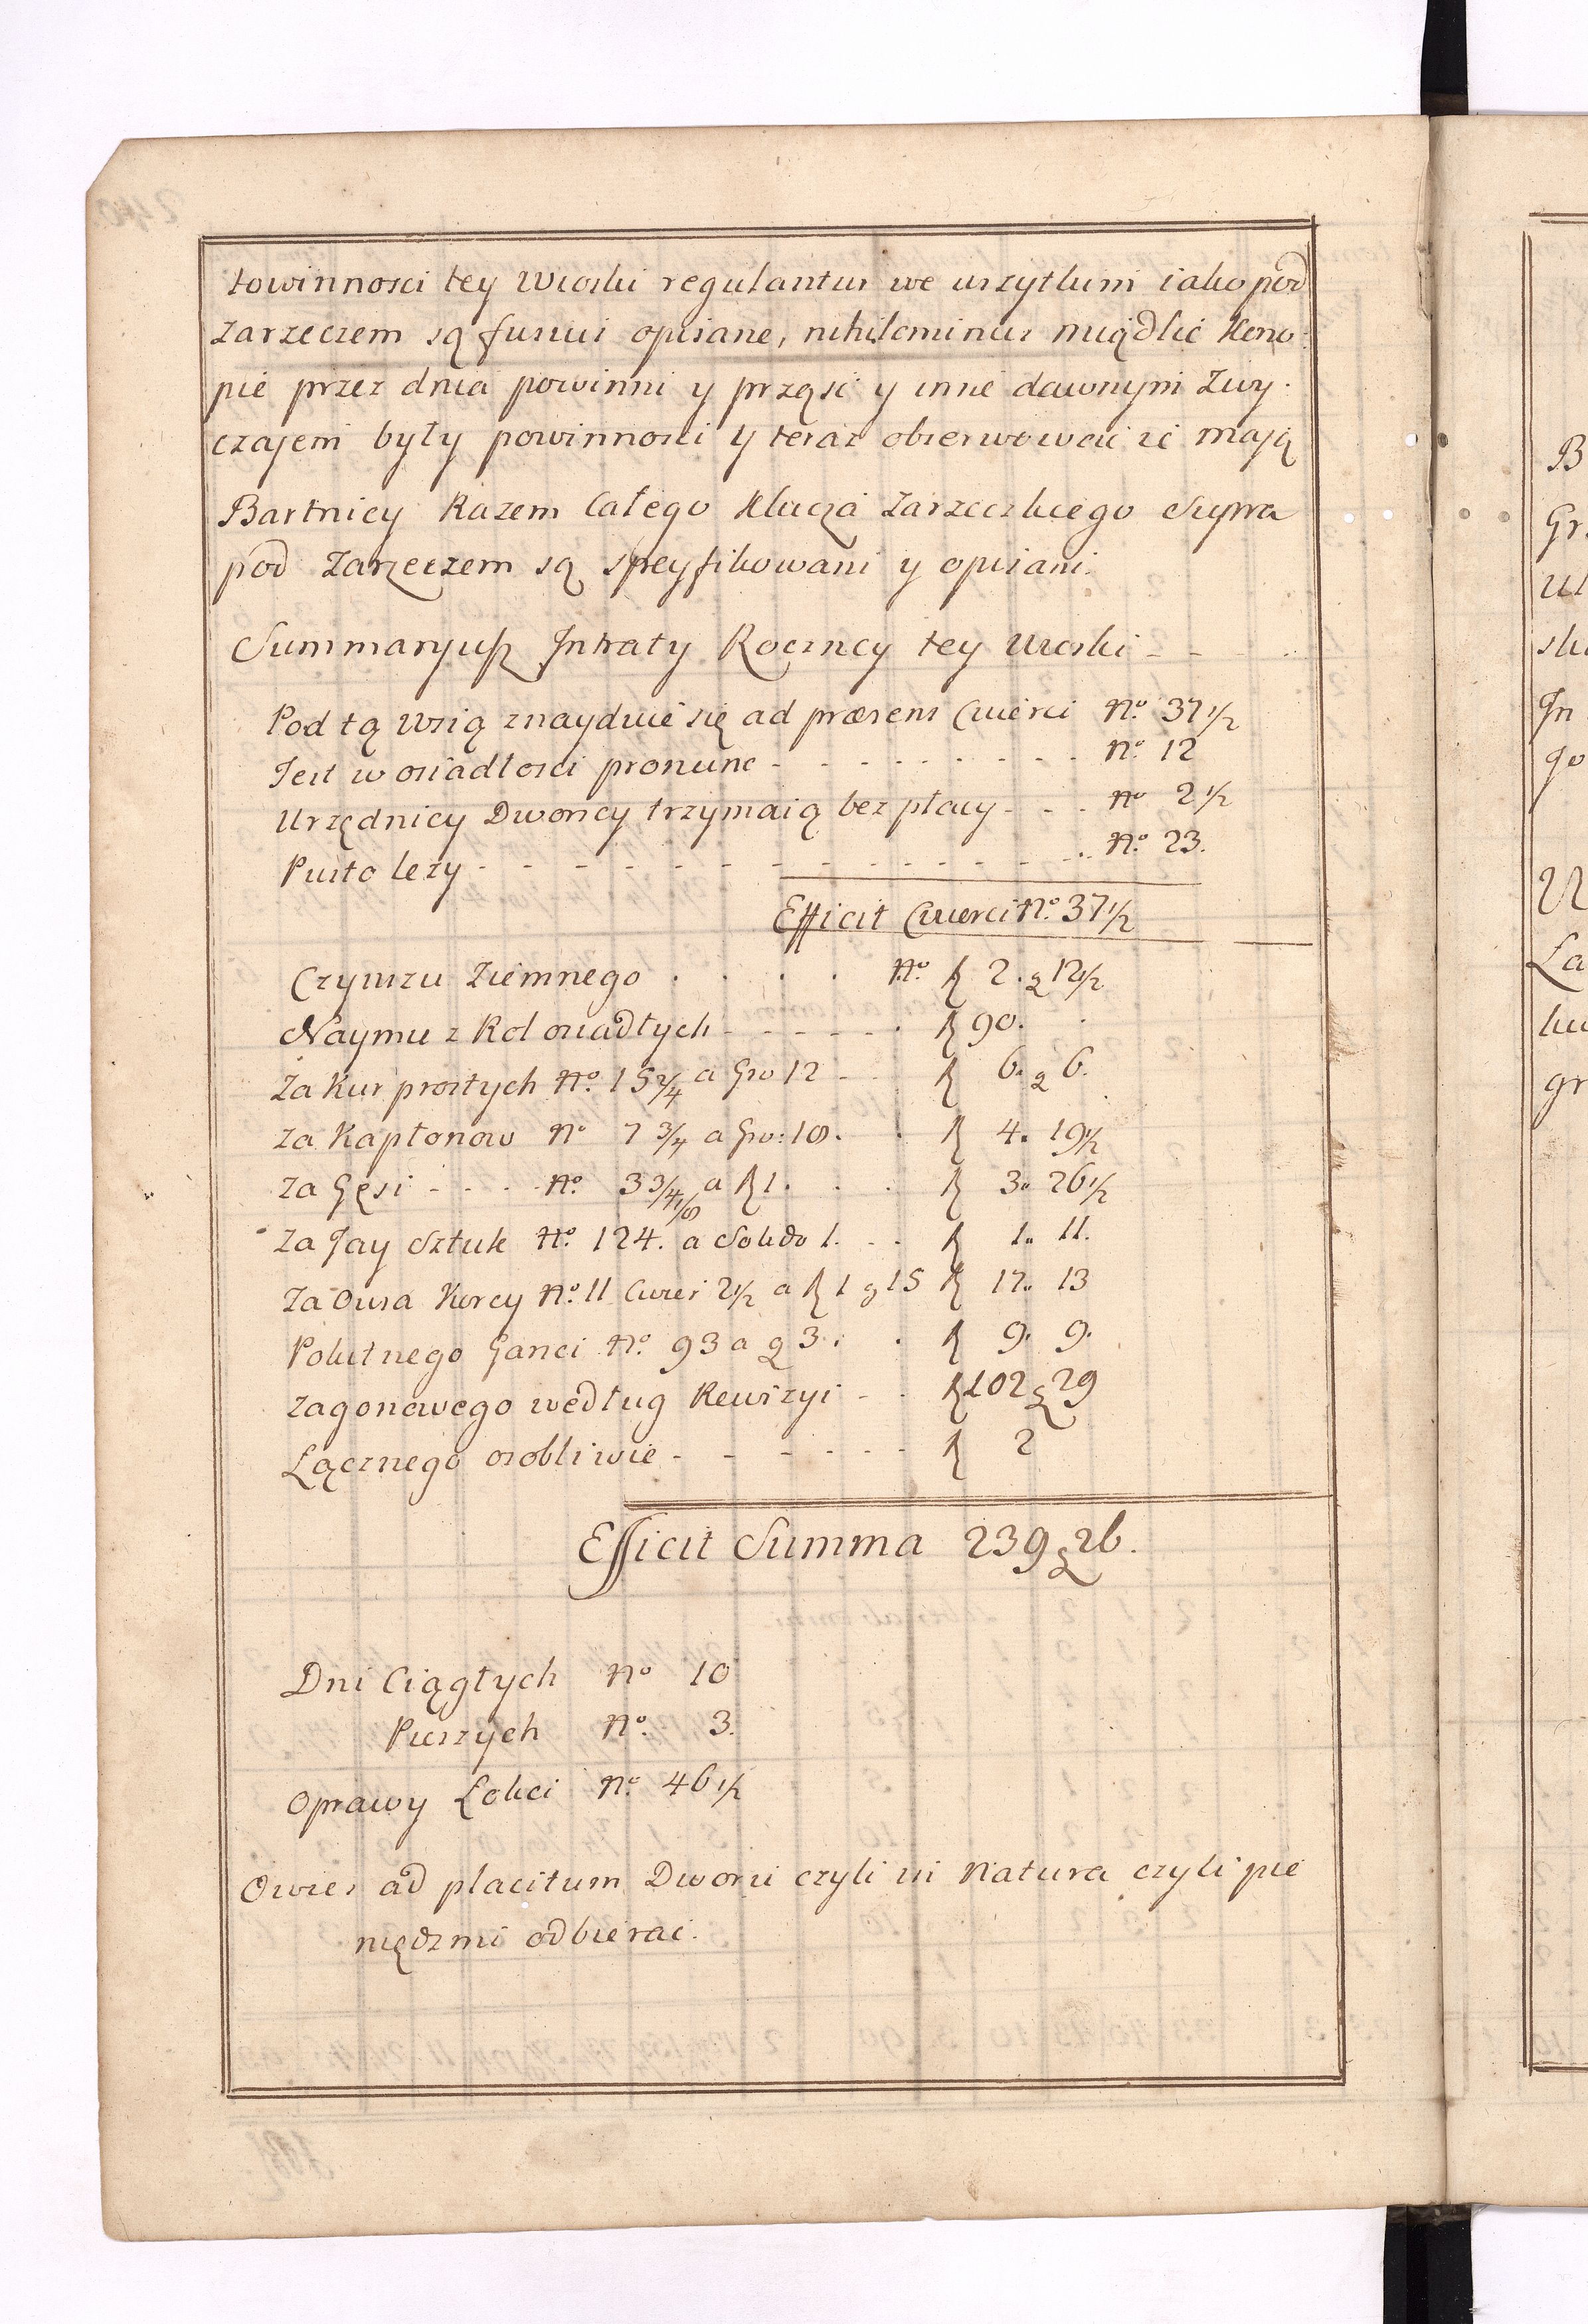 Powinnosci tey Wioski regulantur we wszytkim iako pod
Zarzeczem są fusius opisane, nihilominus międlic Kono-
pie przez dnia powinni y prząsc y inne dawnym Zwy-
czajem były powinnosci y teraz obserwowac ie mają
Bartnicy Razem Całego Klucza Zarzeczkiego Supra
pod Zarzeczem są specyfikowani y opisani.
Summaryusz Intraty Roczney tey Wioski
Pod tą Wsią znayduie się ad præsens Cwierci No. 37 1/2
Jest w osiadłosci pronunc No. 12
Urzędnicy Dworscy trzymaią bez płacy No 2 1/2
Pusto lezy No. 23.
Efficit Cwierci No. 37 1/2
Czynszu Ziemnego No. zł 2. g 12 1/2
Naymu z Rol osiadłych zł 90.
Za Kur prostych No. 15 2/4 a Gro 12 zł 6. g 6.
Za Kapłonow No 7 3/4 a Gro: 18. zł 4. 19 1/2
Za Gęsi No. 3 3/4 1/8 a zł 1. zł 3. 26 1/2
Za Jay Sztuk No. 124. a Solido 1. zł 1. 11.
Za Owsa Korcy No. 11 Cwier 2 1/2 a zł 1 g 15 zł 17. 13
Polutnego Ganci No. 93 a g 3. zł 9. 9.
Zagonowego według Rewizyi zł 102 g 29
Łącznego osobliwie zł 2
Efficit Summa 239 g 26.
Dni Ciągłych No 10
Pieszych No. 3.
Oprawy Łokci No. 46 1/2
Owies ad placitum Dworu czyli in Natura czyli pie
niędzmi odbierac.